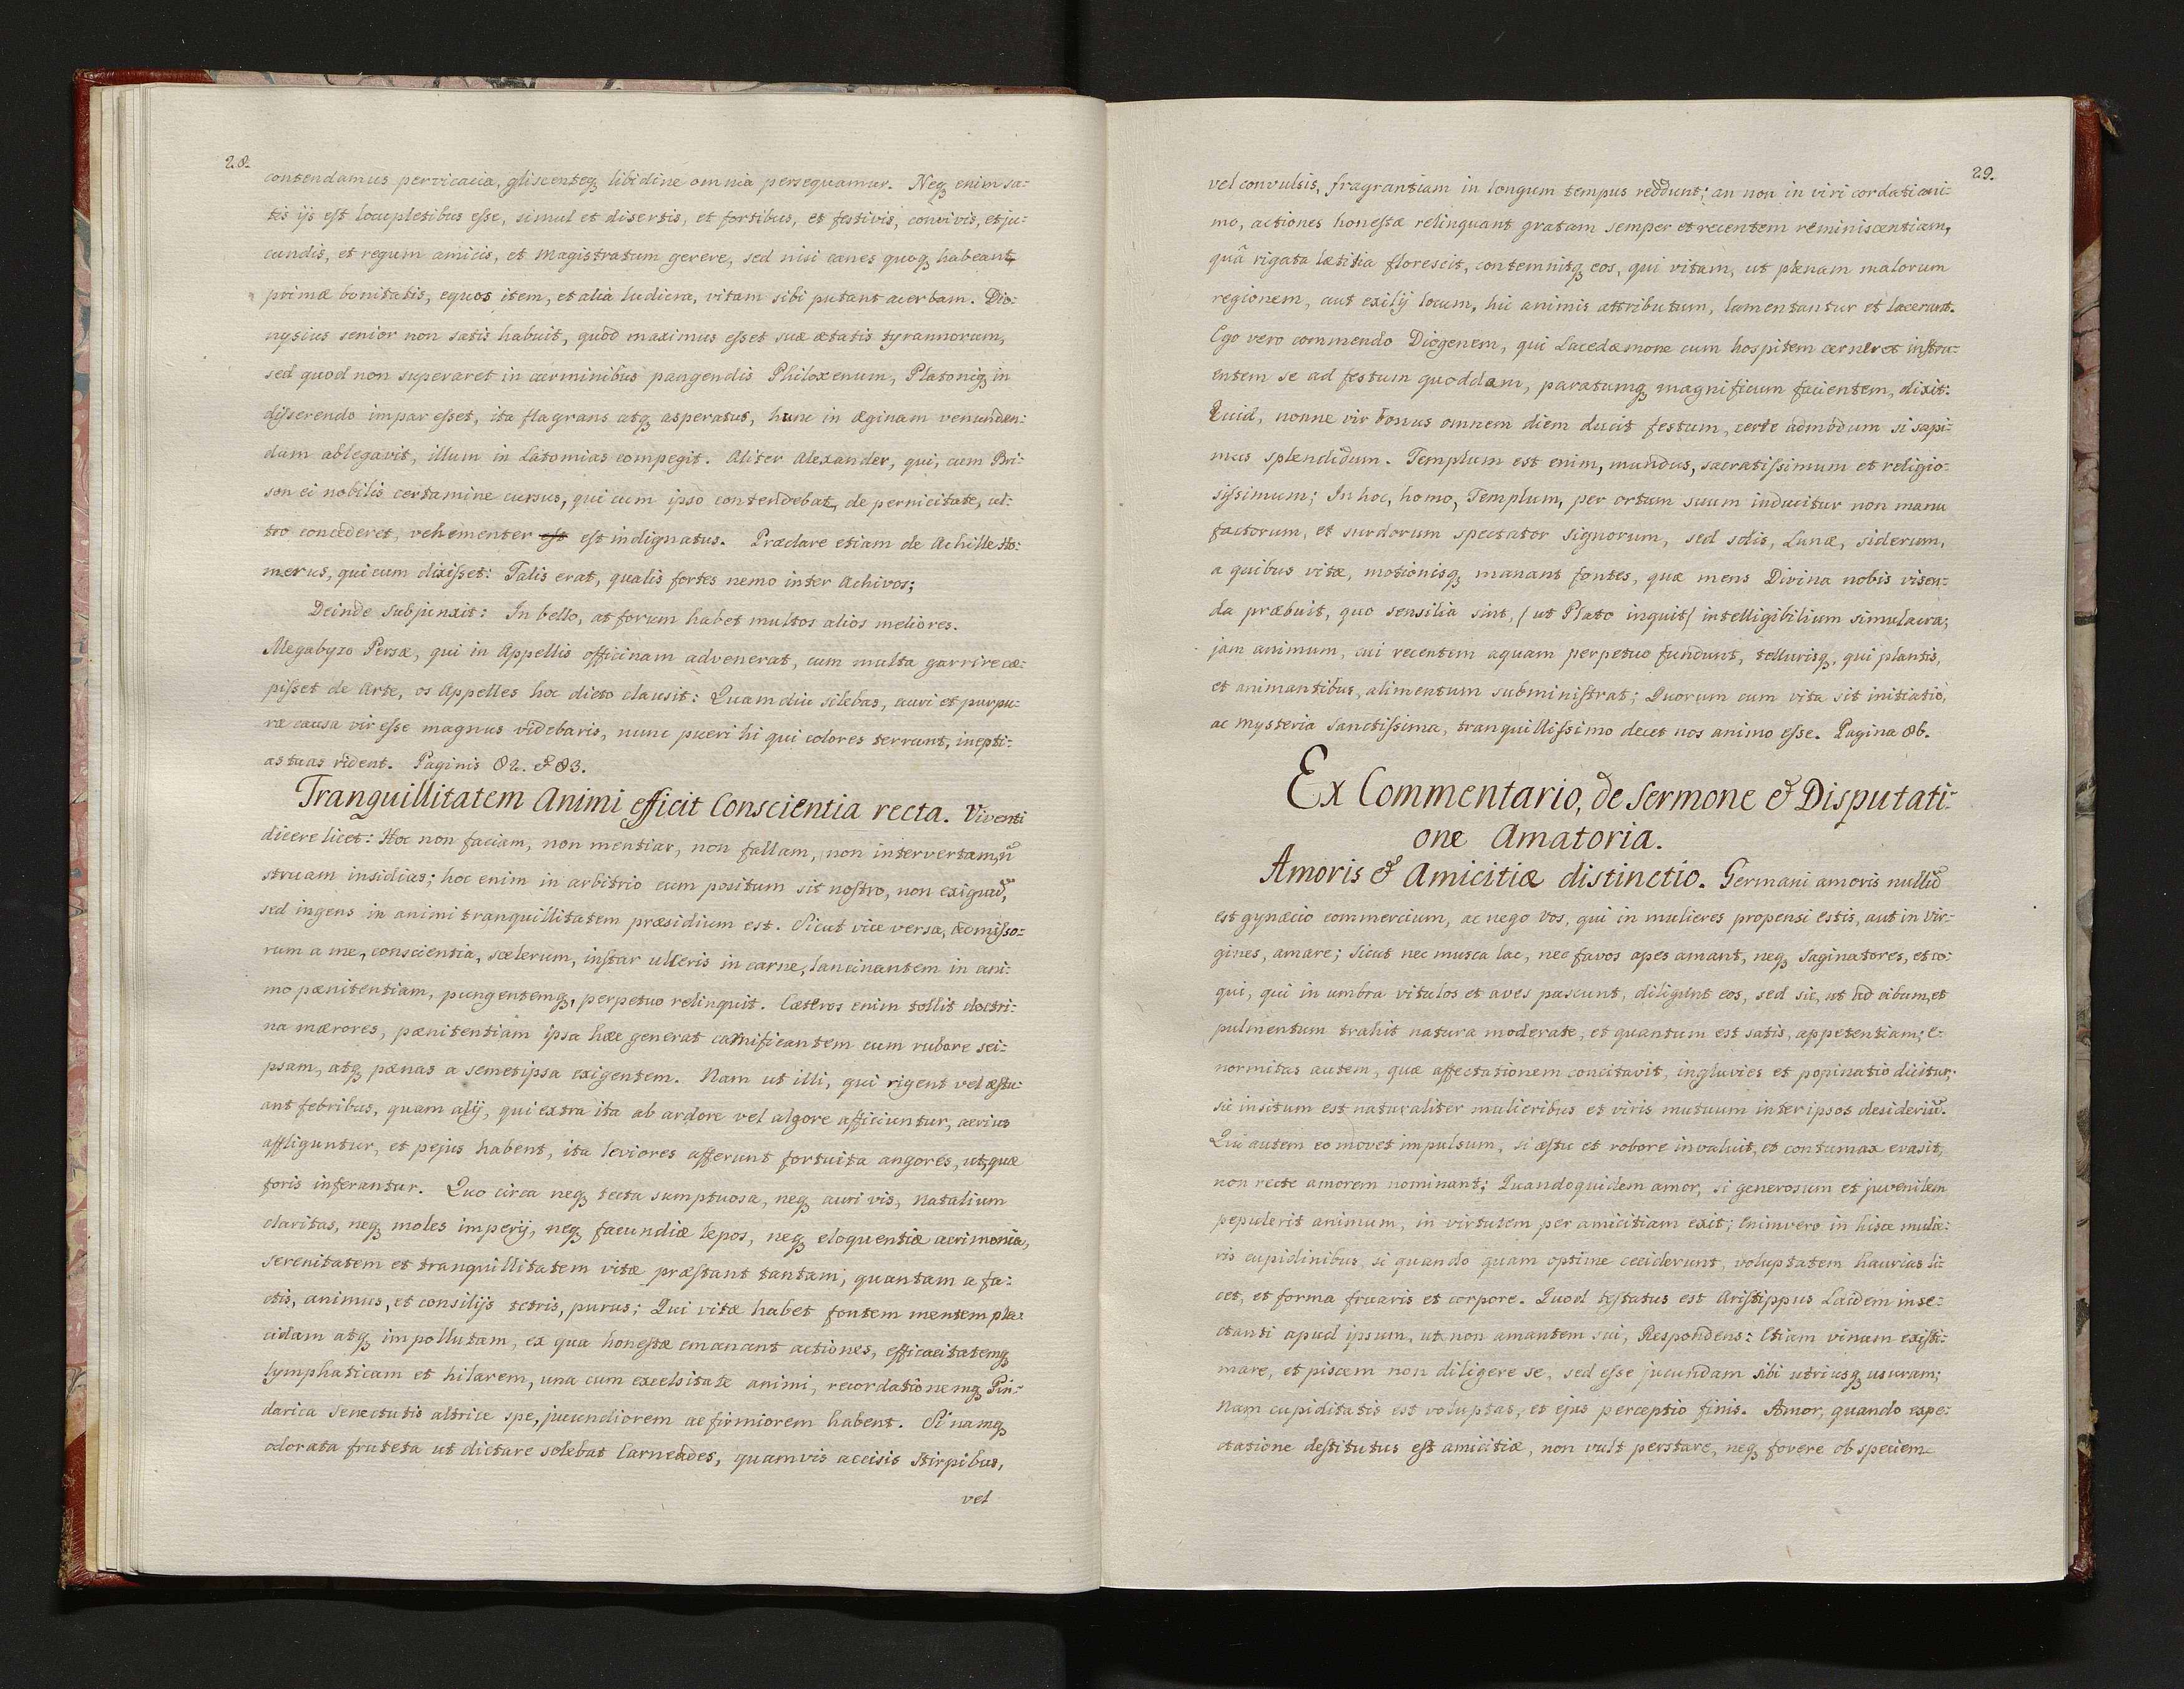 28.
contendamus pervicacia, gliscenteq, libidine omnia persequamur. Neq, enim sa:
tis ijs est locupletibus esse, simul et disertis, et fortibus, et festivis, convivis, et ju:
cundis, et regum amicis, et Magistratum gerere, sed nisi canes quoq, habeant,
primæ bonitatis, equos item, et alia ludicra, vitam sibi putant acerbam. Dio:
nysius senior non satis habuit, quod maximus esset suæ ætatis tyrannorum,
sed quod non superaret in carminibus pangendis Philoxenum, Platoniq, in
disserendo impar esset, ita flagrans atq, asperatus, hunc in Æginam venunden:
dum ablegavit, illum in Latomias compegit. Aliter Alexander, qui, cum Bri:
son ei nobilis certamine cursus, qui cum ipso contendebat, de pernicitate, ul:
tro concederet, vehementer est est indignatus. Præclare etiam de Achille Ho:
merus, qui cum dixisset: Talis erat, qualis fortes nemo inter Achivos;
Deinde subjunxit: In bello, at forum habet multos alios meliores.
Megabyzo Persæ, qui in Appellis officinam advenerat, cum multa garrire cæ:
pisset de Arte, os Appelles hoc dicto clausit: Quam diu silebas, auri et purpu:
ræ causa vir esse magnus videbaris, nunc pueri hi qui colores terrunt, inepti:
as tuas rident. Paginis 82. & 83.
Tranquillitatem Animi efficit Conscientia recta. Viventi
dicere licet: Hoc non faciam, non mentiar, non fallam, non intervertam, n̄
struam insidias; hoc enim in arbitrio cum positum sit nostro, non exiguū,
sed ingens in animi tranquillitatem præsidium est. Sicut vice versa, admisso:
rum a me, conscientia, scelerum, instar ulceris in carne, lancinantem in ani:
mo pænitentiam, pungentemq, perpetuo relinquit. Cæteros enim tollit doctri:
na mærores, pænitentiam ipsa hæc generat carnificantem cum rubore sei:
psam, atq, pænas a semetipsa exigentem. Nam ut illi, qui rigent vel æstu:
ant febribus, quam alij, qui extra ita ab ardore vel algore afficiuntur, acrius
affliguntur, et pejus habent, ita leviores afferunt fortuita angores, ut, quæ
foris inferantur. Quo circa neq, tecta sumptuosa, neq, auri vis, natalium
claritas, neq, moles imperij, neq, facundiæ lepos, neq, eloquentiæ acrimonia,
serenitatem et tranquillitatem vitæ præstant tantam, quantam a fa:
ctis, animus, et consilijs tetris, purus; Qui vitæ habet fontem mentem pla:
cidam atq, impollutam, ex qua honestæ emanant actiones, efficacitatemq,
lymphaticam et hilarem, una cum excelsitate animi, recordationemq, Pin:
darica senectutis altrice spe, jucundiorem ac firmiorem habent. Si namq,
odorata fruteta ut dictare solebat Carneades, quamvis accisis stirpibus,
vel
29.
vel convulsis, fragrantiam in longum tempus reddunt; an non in viri cordati ani:
mo, actiones honestæ relinquant gratam semper et recentem reminiscentiam,
quâ rigata lætitia florescit, contemnitq, eos, qui vitam, ut plenam malorum
regionem, aut exilij locum, hic animis attributum, lamentantur et lacerant.
Ego vero commendo Diogenem, qui Lacedæmone cum hospitem cerneret instru:
entem se ad festum quoddam, paratumq, magnificum facientem, dixit:
Quid, nonne vir bonus omnem diem ducit festum, certe admodum si sapi:
mus splendidum. Templum est enim, mundus, sacratissimum et religio:
sissimum; In hoc, homo, Templum, per ortum suum inducitur non manu
factorum, et surdorum spectator signorum, sed solis, Lunæ, siderum,
a quibus vitæ, motionisq, manant fontes, quæ mens Divina nobis visen:
da præbuit, quo sensilia sint, (ut Plato inquit) intelligibilium simulacra;
jam animum, cui recentem aquam perpetuo fundunt, tellurisq, qui plantis,
et animantibus, alimentum subministrat; Quorum cum vita sit initiatio,
ac mysteria sanctissima, tranquillissimo decet nos animo esse. Pagina 86.
Ex Commentario, de Sermone & Disputati:
one Amatoria.
Amoris & Amicitiæ distinctio. Germani amoris nullū
est gynæcio commercium, ac nego vos, qui in mulieres propensi estis, aut in vir:
gines, amare; Sicut nec musca lac, nec favos apes amant, neq, saginatores, et co:
qui, qui in umbra vitulos et aves pascunt, diligunt eos, sed sic, ut ad cibum, et
pulmentum trahit natura moderate, et quantum est satis, appetentiam; E:
normitas autem, quæ affectationem concitavit, ingluvies et popinatio dicitur;
sic insitum est naturaliter mulieribus et viris mutuum inter ipsos desideriū.
Qui autem eo movet impulsum, si æstu et robore invaluit, et contumax evasit,
non recte amorem nominant; Quandoquidem amor, si generosum et juvenilem
pepulerit animum, in virtutem per amicitiam exit; Enimvero in hisce mulie:
ris cupidinibus, si quando quam optime ceciderunt, voluptatem haurias li:
cet, et forma fruaris et corpore. Quod testatus est Aristippus Laidem inse:
ctanti apud ipsum, ut non amantem sui, Respondens: Etiam vinum existi:
mare, et piscem non diligere se, sed esse jucundam sibi utriusq, usuram;
Nam cupiditatis est voluptas, et ejus perceptio finis. Amor, quando expe:
ctatione destitutus est amicitiæ, non vult perstare, neq, fovere ob speciem